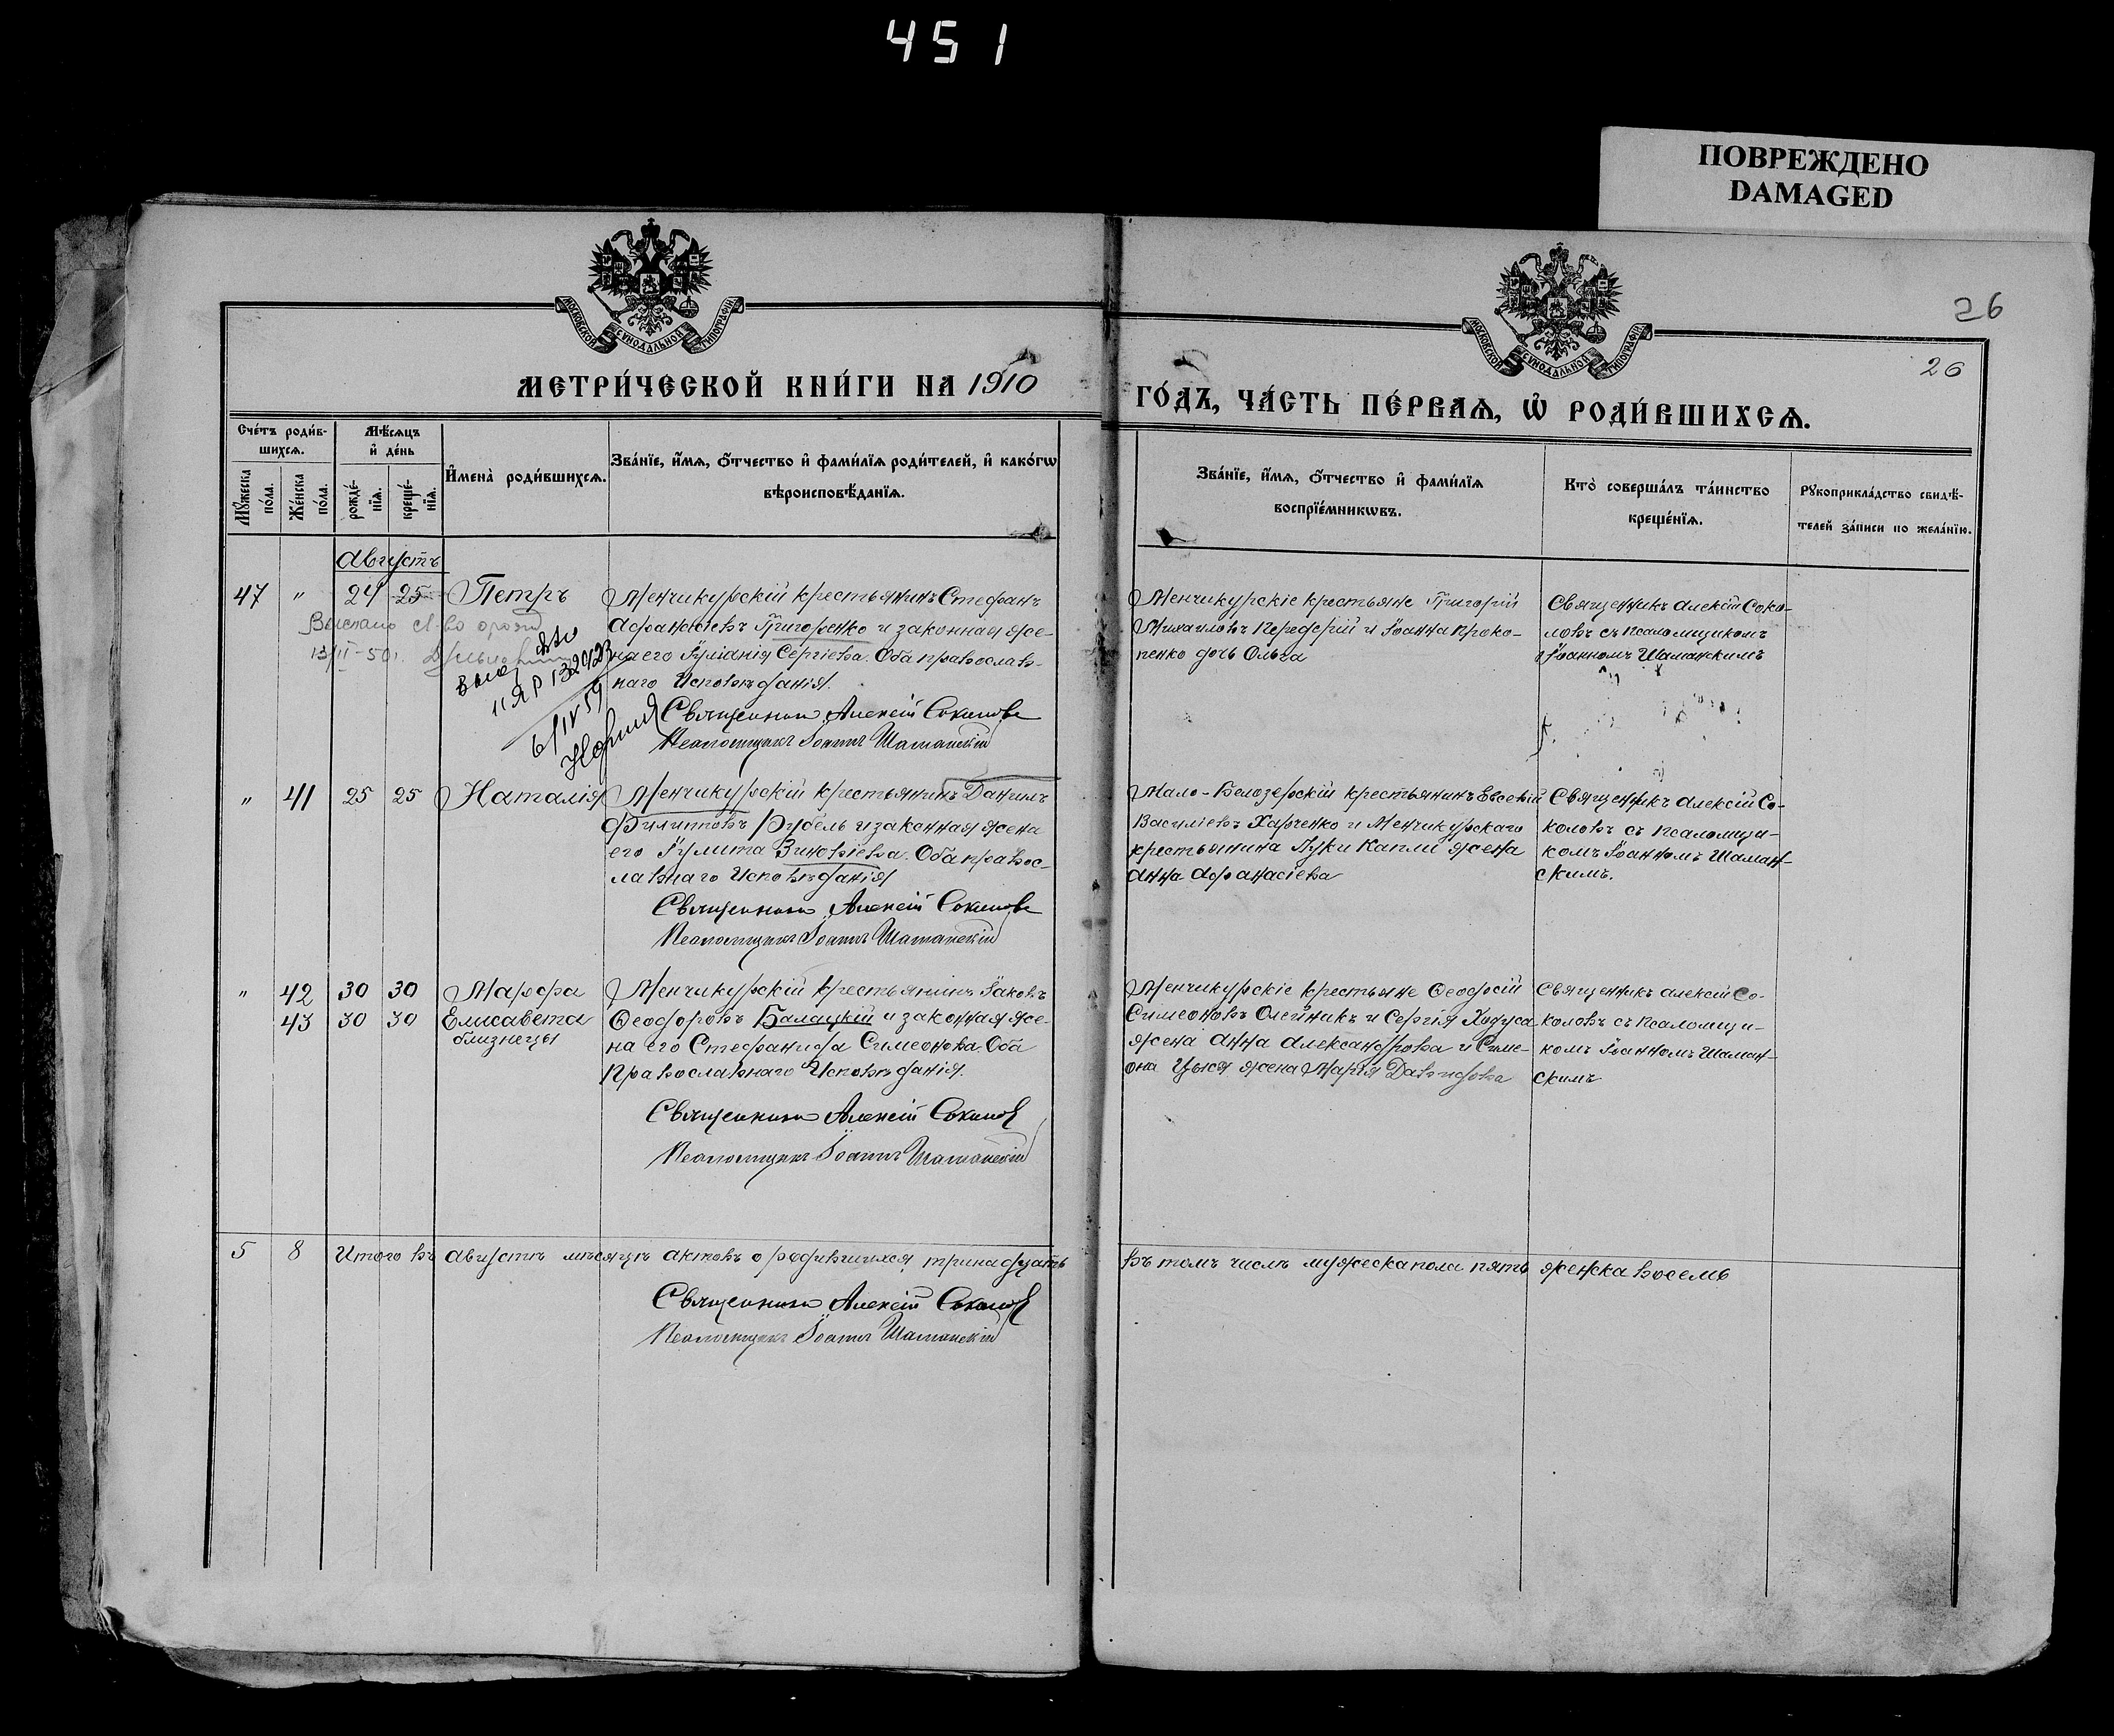 451
ПОВРЕЖДЕНО
DAMAGED
МОСКОВСКОЙ СѴНОДАЛЬНОЙ ТИПОГРАФІИ
МОСКОВСКОЙ СѴНОДАЛЬНОЙ ТИПОГРАФІИ
26
26
МЕТРИ́ЧЕСКОЙ КНИ́ГИ НА 1910
ГО́ДЪ, ЧА́СТЬ ПЕ́РВАѦ, Ѡ҆ РОДИ́ВШИХСѦ.
Сче́тъ роди́в-
шихсѧ.
Мѣ́сѧцъ
и҆ де́нь
Мꙋ́жеска
по́ла.
Же́нска
по́ла.
рожде́-
нїѧ.
креще́-
нїѧ.
И҆мена̀ роди́вшихсѧ.
Зва́нїе, и҆́мѧ, ѻ҆́тчество и҆ фами́лїѧ роди́телей, и҆ како́гѡ
вѣроисповѣ́данїѧ.
Зва́нїе, и҆́мѧ, ѻ҆́тчество и҆ фами́лїѧ
воспрїе́мникѡвъ.
Кто̀ соверша́лъ та́инство
креще́нїѧ.
Рꙋкоприкла́дство свидѣ́-
телей за́писи по жела́нїю.
Августъ
47 " 24 25 Петръ
Менчикурскій крестьянинъ Стефанъ
Афанасіевъ Григоренко и законная же-
на его Іуліанія Сергіева. Оба православ-
наго Исповѣданія.
Священникъ Алексій Соколовъ
Псаломщикъ Іоаннъ Шаманскій
Выслано св-во о рожд
13/II-50г.
6/IV 59
Менчикурскіе крестьяне Григорій
Михаиловъ Передерій и Іоанна Проко-
пенко дочь Ольга
Священникъ Алексій Соко-
ловъ съ псаломщикомъ
Іоанномъ Шаманскимъ
" 41 25 25 Наталія
Менчикурскій крестьянинъ Даніилъ
Филипповъ Рубель и законная жена
его Іулита Зиновіева. Оба правос-
лавнаго Исповѣданія
Священникъ Алексій Соколовъ
Псаломщикъ Іоаннъ Шаманскій
Мало-Белозерскій крестьянинъ Евсевій
Василіевъ Харченко и Менчикурскаго
крестьянина Луки Капли жена
Анна Афанасіева
Священникъ Алексій Со-
коловъ съ псаломщи-
комъ Іоанномъ Шаман-
скимъ.
" 42 30 30 Марфа
43 30 30 Елисавета
близнецы
Менчикурскій крестьянинъ Іаковъ
Ѳеодоровъ Балацкій и законная же-
на его Стефанида Симеонова. Оба
Православнаго Исповѣданія.
Священникъ Алексій Соколов
Псаломщикъ Іоаннъ Шаманскій
Менчикурскіе крестьяне Ѳеодосій
Симеоновъ Олейникъ и Сергія Ходуса
жена Анна Александрова и Симе-
она Цыся жена Марія Давидова
Священникъ Алексій Со-
коловъ съ псаломщи-
комъ Іоанномъ Шаман-
скимъ
5 8 Итого въ августѣ мѣсяцѣ актовъ о родившихся тринадцать
въ томъ числѣ мужеска пола пять женска восемь
Священникъ Алексій Соколов
Псаломщикъ Іоаннъ Шаманскій